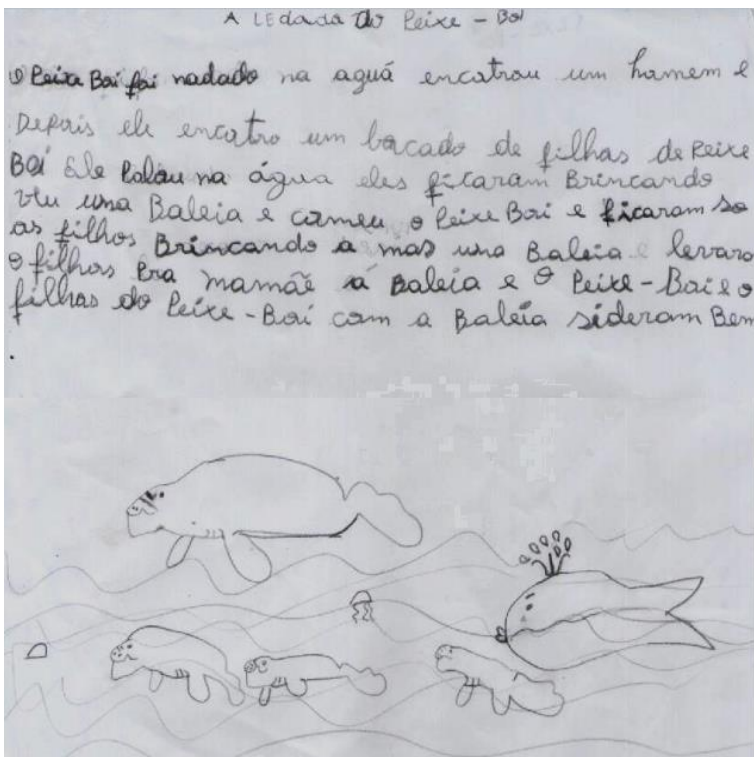 A LEdada Do Peixe - Boi
O Peixe Boi foi nadado na aguá encatrou um homem e
Depois ele encatro um bacado de filhas de Peixe
Boi Ele Palou na água eles ficaram Brincando
veu uma Baleia e comeu o Peixe Boi e ficaram so
os filhos Brincando a mas uma Baleia e levaro
o filhos Pra mamãe a Baleia e o Peixe-Boi e o
filhas do Peixe-Boi com a Baleia sideram Bem
.